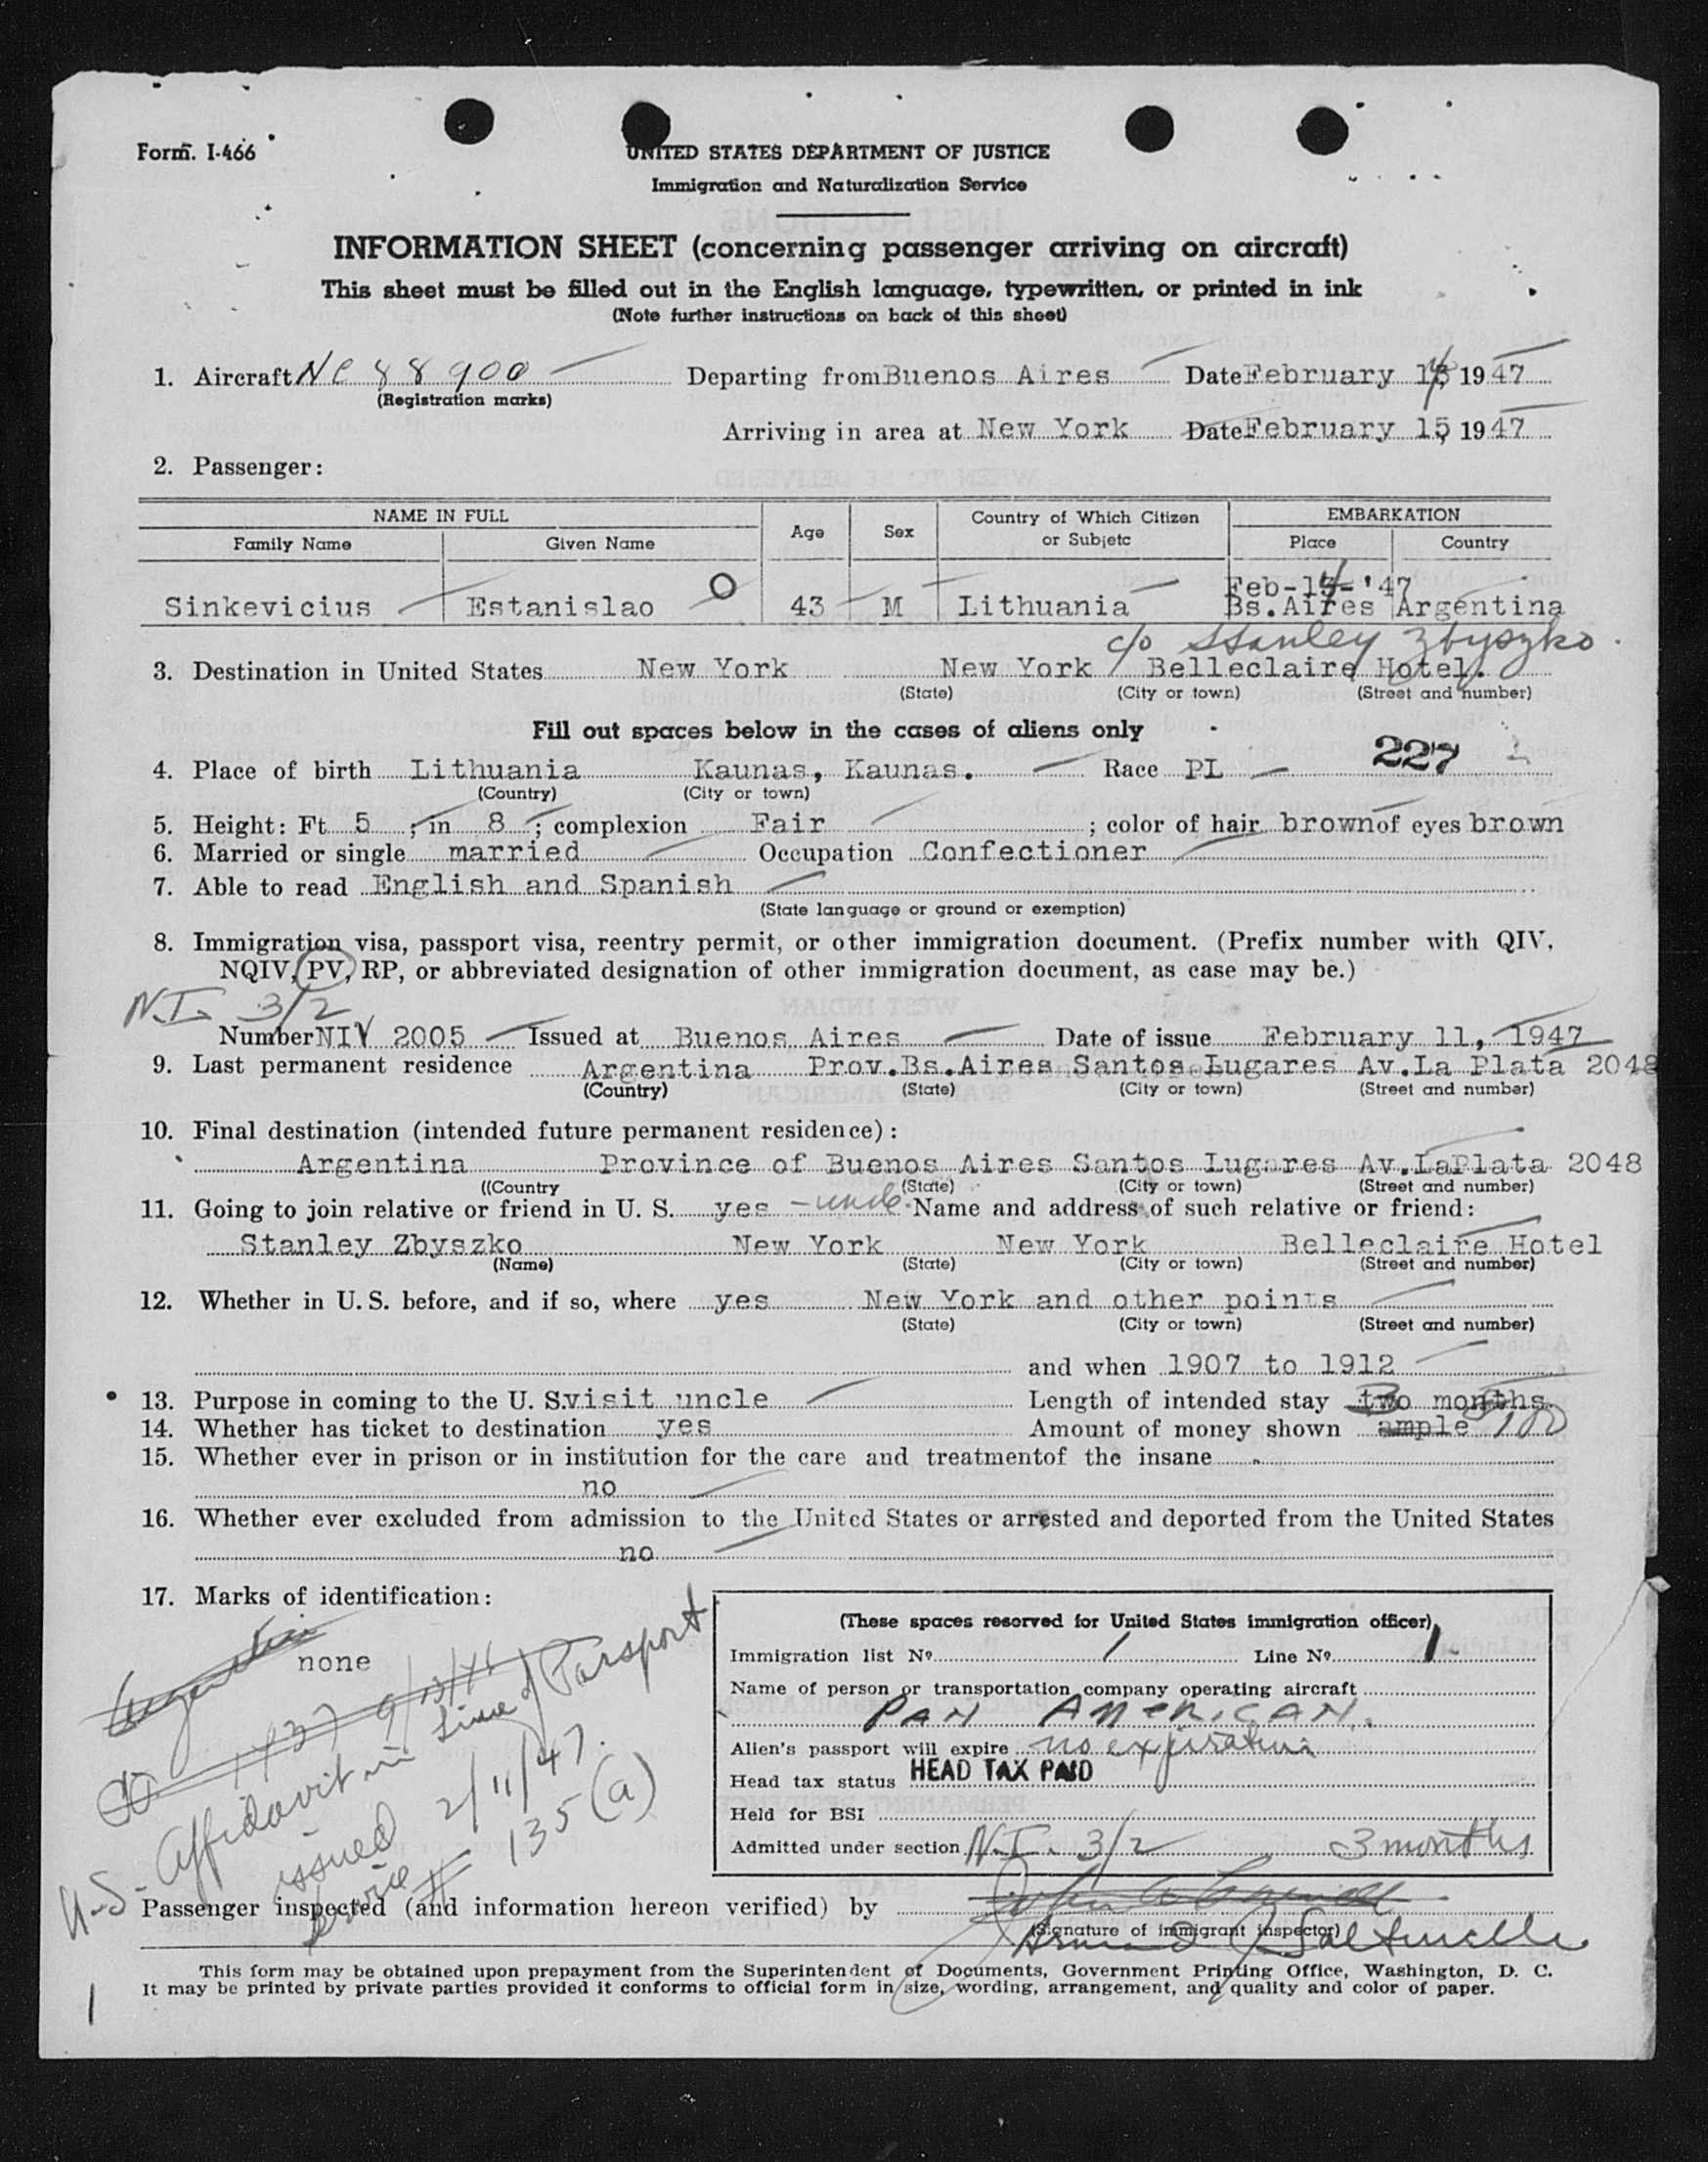 Form. I-466
UNITED STATES DEPARTMENT OF JUSTICE
Immigration and Naturalization Service
INFORMATION SHEET (concerning passenger arriving on aircraft)
This sheet must be filled out in the English language, typewritten, or printed in ink
(Note further instructions on back of this sheet)
1. Aircraft NC 88900 Departing from Buenos Aires Date February 14, 1947
(Registration marks)
Arriving in area at New York Date February 15, 1947
2. Passenger:
NAME IN FULL Age Sex Country of Which Citizen or Subjetc EMBARKATION
Family Name Given Name Place Country
Feb-14-'47
Sinkevicius Estanislao O 43 M Lithuania Bs.Aires Argentina
c/o Stanley Zbyszko
3. Destination in United States New York New York Belleclaire Hotel.
(State) (City or town) (Street and number)
Fill out spaces below in the cases of aliens only
227
4. Place of birth Lithuania Kaunas, Kaunas. Race PL
(Country) (City or town)
5. Height: Ft 5 ; in 8 ; complexion Fair ; color of hair brown of eyes brown
6. Married or single married Occupation Confectioner
7. Able to read English and Spanish
(State language or ground or exemption)
8. Immigration visa, passport visa, reentry permit, or other immigration document. (Prefix number with QIV,
NQIV, PV, RP, or abbreviated designation of other immigration document, as case may be.)
N.I. 3/2
Number NIV 2005 Issued at Buenos Aires Date of issue February 11, 1947
9. Last permanent residence Argentina Prov.Bs.Aires Santos Lugares Av.La Plata 2048
(Country) (State) (City or town) (Street and number)
10. Final destination (intended future permanent residence):
Argentina Province of Buenos Aires Santos Lugares Av.LaPlata 2048
((Country (State) (City or town) (Street and number)
11. Going to join relative or friend in U. S. yes - uncle. Name and address of such relative or friend:
Stanley Zbyszko New York New York Belleclaire Hotel
(Name) (State) (City or town) (Street and number)
12. Whether in U. S. before, and if so, where yes New York and other points
(State) (City or town) (Street and number)
and when 1907 to 1912
13. Purpose in coming to the U. S. visit uncle Length of intended stay two 3 months.
14. Whether has ticket to destination yes Amount of money shown ample 5100
15. Whether ever in prison or in institution for the care and treatmentof the insane
no
16. Whether ever excluded from admission to the United States or arrested and deported from the United States
no
17. Marks of identification:
none
U.S. Affidavit in Lieu of Passport
issued 2/11/47.
Service # 135(a)
(These spaces reserved for United States immigration officer)
Immigration list Nº 1 Line Nº 1
Name of person or transportation company operating aircraft
PAN AMERICAN.
Alien's passport will expire no expiration
Head tax status HEAD TAX PAID
Held for BSI
Admitted under section N.I. 3/2 3 months
Passenger inspected (and information hereon verified) by
(Signature of immigrant inspector)
This form may be obtained upon prepayment from the Superintendent of Documents, Government Printing Office, Washington, D. C.
It may be printed by private parties provided it conforms to official form in size, wording, arrangement, and quality and color of paper.